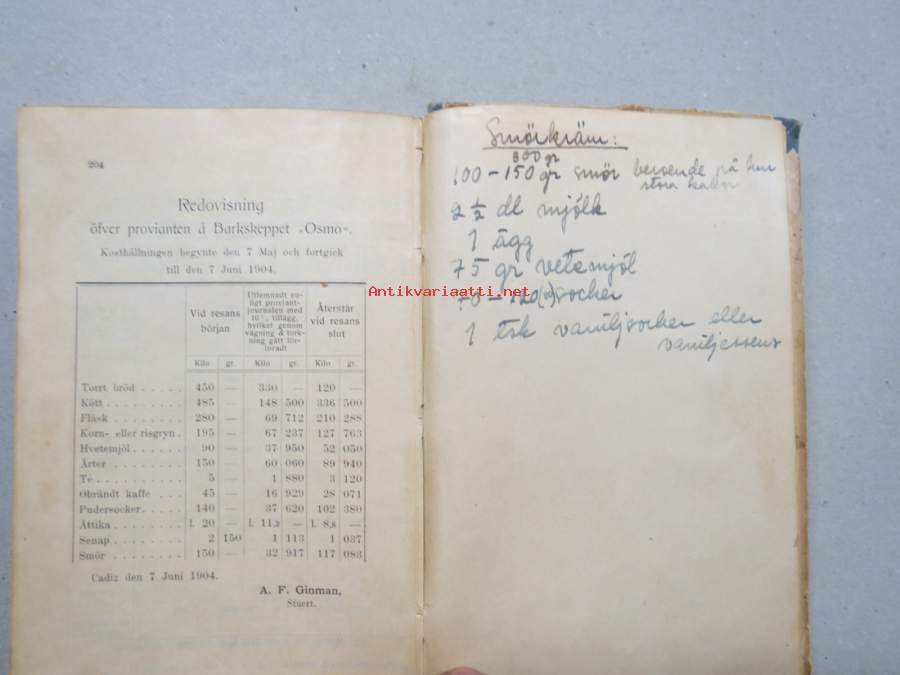 204
Redovisning
öfver provianten å Barkskeppet »Osmo».
Kosthållningen begynte den 7 Maj och fortgick
till den 7 Juni 1904.
Vid resans början | Utlemnadt enligt proviantjournalen med 10 %, tillägg, hvilket genom vägning & torkning gått förloradt | Återstår vid resans slut
Kilo gr. Kilo gr. Kilo gr.
Torrt bröd 450 — 330 — 120 —
Kött 485 — 148 500 336 500
Fläsk 280 — 69 712 210 288
Korn- eller risgryn 195 — 67 237 127 763
Hvetemjöl 90 — 37 950 52 050
Ärter 150 — 60 060 89 940
Té 5 — 1 880 3 120
Obrändt kaffe 45 — 16 929 28 071
Pudersocker 140 — 37 620 102 380
Ättika l. 20 — l. 11,2 — l. 8,8 —
Senap 2 150 1 113 1 037
Smör 150 — 32 917 117 083
Cadiz den 7 Juni 1904.
A. F. Ginman,
Stuert.
Smörkräm:
300 gr
100 – 150 gr smör beroende på hur
stor kakan
2 ½ dl mjölk
1 ägg
75 gr vetemjöl
70 – 120 socker
1 tsk vaniljsocker eller
vaniljessens
Antikvariaatti.net